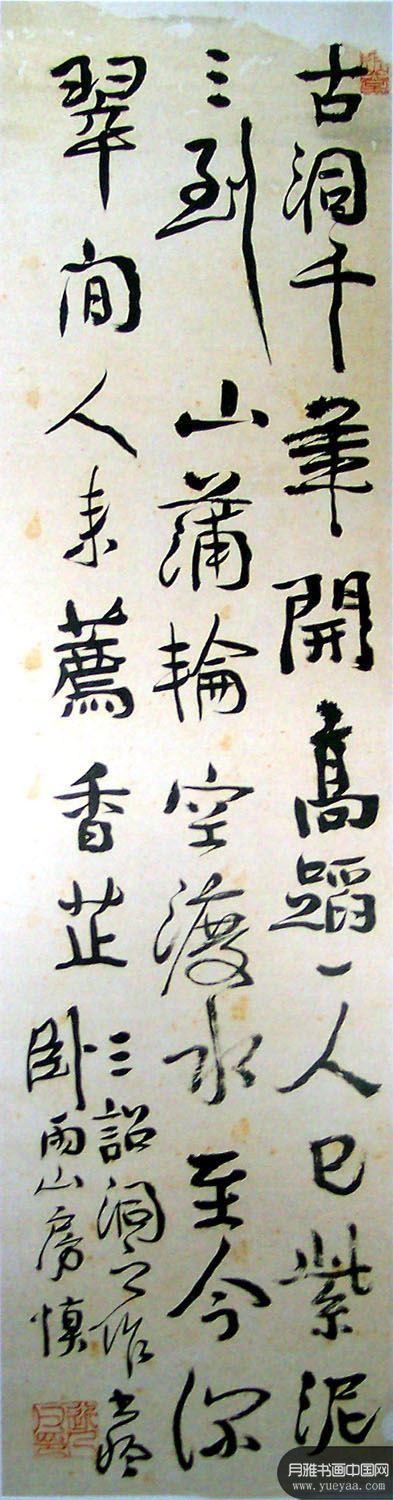 古洞千年開高蹈一人已紫泥
三到山蒲輪空渡水至今深
翠間人来薦香芷
三詔洞之作書於
卧雨山房慎
月雅书画中国网
www.yueyaa.com